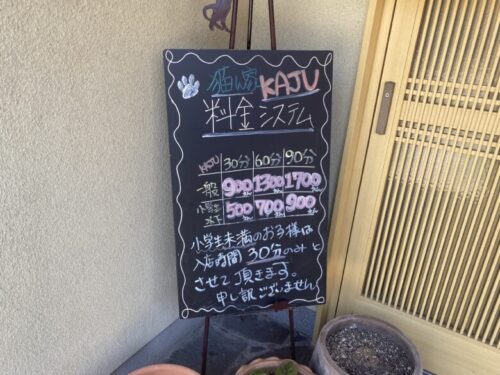 猫ん家 KAJU
料金システム
KAJU 30分 60分 90分
一般 900円 1300円 1700円
小学生以下 500円 700円 900円
小学生未満のお子様は
入店時間 30分のみと
させて頂きます。
申し訳ございません